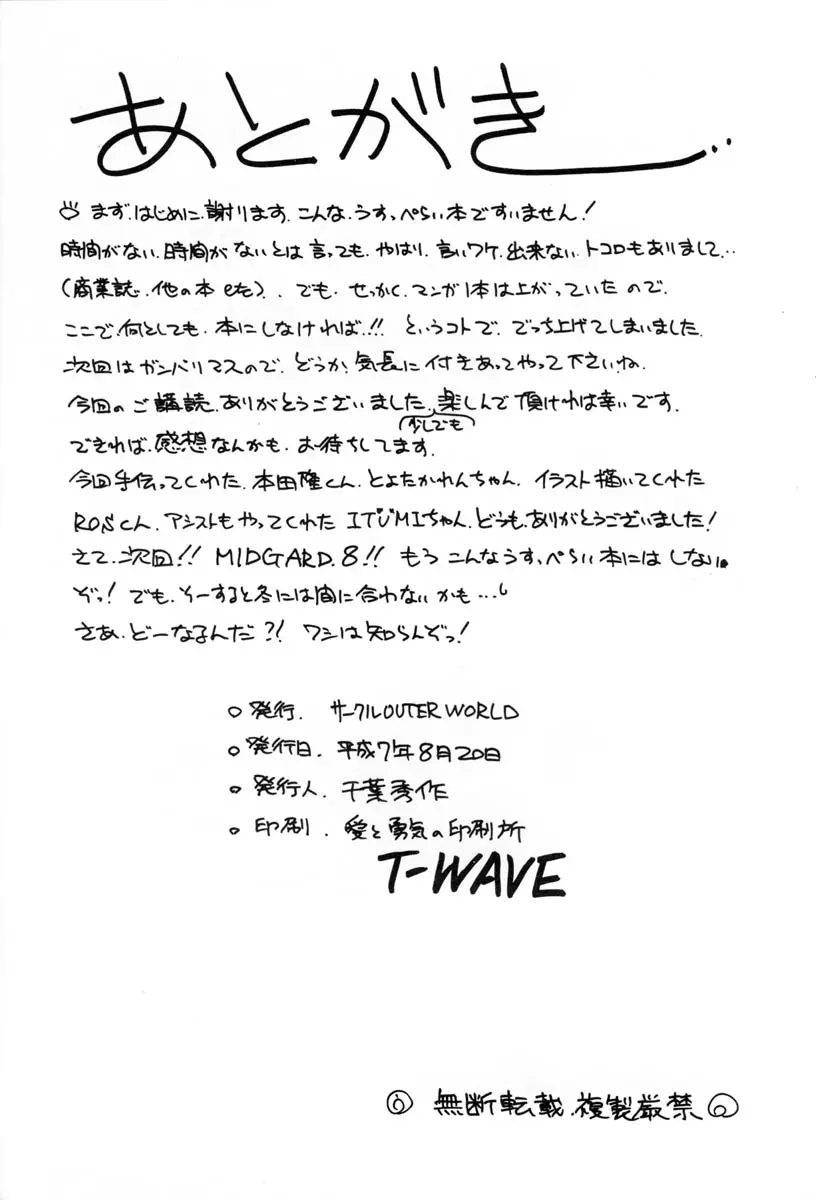 あとがき...
まず.はじめに.謝ります.こんな.うすっぺらい本ですいません!
時間がない.時間がないとは言っても.やはり.言いワケ.出来ない.トコロもありまして...
(商業誌.他の本etc)..でも.せっかく.マンガ1本は上がっていたので.
ここで.何としても.本にしなければ.!!というコトで.でっち上げてしまいました.
次回はガンバリマスので.どうか.気長に付きあってやって下さいね.
今回のご購読.ありがとうございました.楽しんで頂ければ幸いです.
少しでも
できれば.感想なんかも.お待ちしてます.
今回手伝ってくれた.本田隆くん.とよたかれんちゃん.イラスト描いてくれた
RONくん.アシストもやってくれたITUMIちゃん.どうも.ありがとうございました!
さて.次回!!MIDGARD.8!!もうこんなうすっぺらい本にはしない
ぞっ!でも.そーすると冬には間に合わないかも...。
さあ.どーなるんだ?!ワシは知らんぞっ!
○発行.サークルOUTER WORLD
○発行日.平成7年8月20日
○発行人.千葉秀作
○印刷.愛と勇気の印刷所
T-WAVE
無断転載.複製厳禁